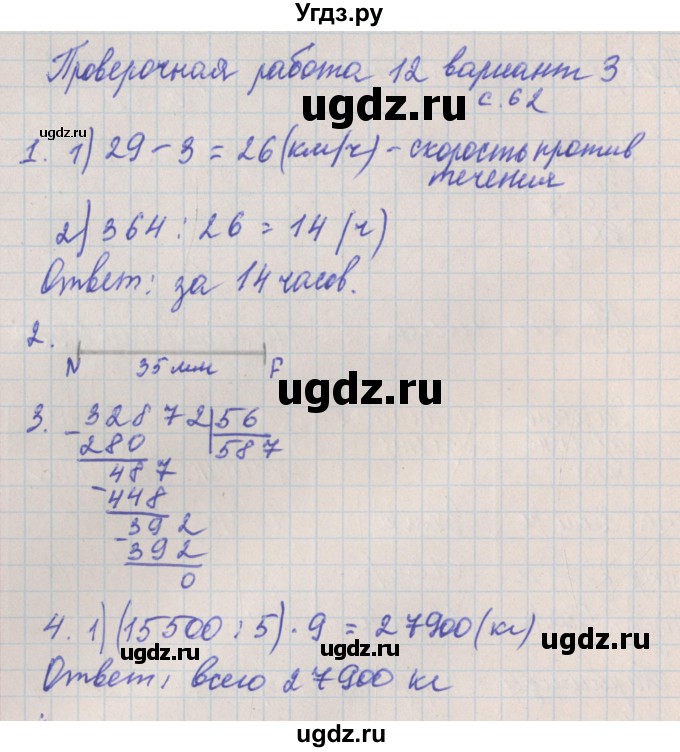 Угдз.ру
Проверочная работа 12 вариант 3
с. 62
ugdz.ru
ugdz.ru
1. 1) 29 - 3 = 26 (км/ч) - скорость против
течения
2) 364 : 26 = 14 (ч)
ugdz.ru
Ответ: за 14 часов.
2.
N 35 мм F
ugdz.ru
3. 32872 | 56
- 280 587
487
- 448
ugdz.ru
- 392
392
0
4. 1) (15500 : 5) · 9 = 27900 (кг)
ugdz.ru
ugdz.ru
Ответ: всего 27900 кг
ugdz.ru
ugdz.ru